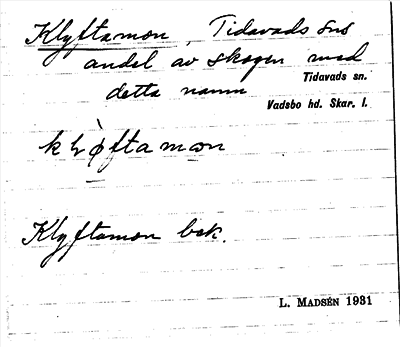 Klyftamon, Tidavads sns
andel av skogen med
detta namn
Tidavads sn.
Vadsbo hd. Skar. l.
Klyftamon bek.
L. Madsén 1931